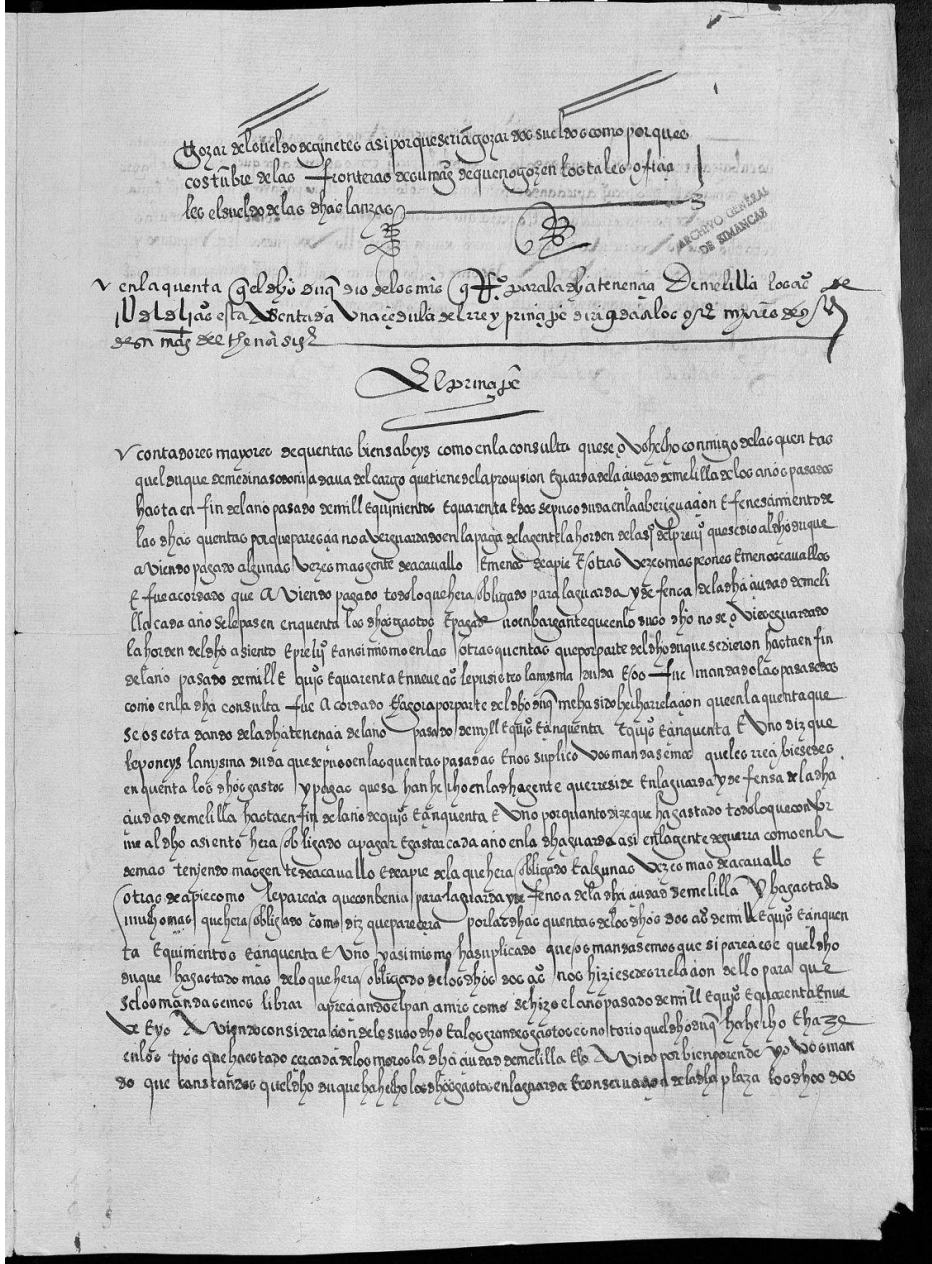 gozar del sueldo de ginetes asi por que serian gozar dos sueldos como por que es
costũbre de las fronteras de su magt de que no gozen los tales ofiçia
les el sueldo de las dhas lanzas
ARCHIVO GENERAL
DE SIMANCAS
en la quenta quel dho duq̃ dio de los mrs para la dha tenençia De melilla los aos de
esta asentada Una çedula del rey prinçipe dirigida a los
de su magt del thenor sigte
El prinçipe
contadores mayores de quentas bien sabeys como en la consulta que se ovo hecho conmigo de las quentas
quel duque de medina sodonia dava del cargo que tiene de la provision E guarda de la çiudad de melilla de los anos pasados
hasta en fin del ano pasado de mill E quinientos E quarenta E dos se puso duda en la aberiguaçion E fenesçimiento de
las dhas quentas por que pareçia no aver guardado en la paga de la gente la horden del que se dio al dho duque
aviendo pagado algunas vezes mas gente de a cavallo E menos de a pie E otras vezes mas peones E menos cavallos
E fue acordado que Aviendo pagado todo lo que hera obligado para la guarda y defensa de la dha çiudad de meli
lla cada año se le pasen en quenta los dhos gastos E pagas no enbargante que en lo suso dho no se oviese guardado
la horden del dho asiento E ansi mismo en las otras quentas que por parte del dho duque se dieron hasta en fin
del año pasado de mill E quis E quarenta E nueve aos se puso otro la mysma duda E os fue mandado las pasasedes
como en la dha consulta fue Acordado E agora por parte del dho duq̃ me ha sido hecha relaçion que en la quenta que
se os esta dando de la dha tenençia del ano pasado de myll E quis E çinquenta E quis E çinquenta E Uno diz que
le poneys la mysma duda que se puso en las quentas pasadas E nos suplico vos mandasemos que les rreçibiesedes
en quenta los dhos gastos y pagas que se han hecho en la dha gente que rreside en la guarda y defensa de la dha
çiudad de melilla hasta en fin del ano de quis E çinquenta E Uno por quanto dize que ha gastado todo lo que confor
me al dho asiento hera obligado a pagar E gastar cada año en la dha guarda asi en la gente de guerra como en lo
demas teniendo mas gente de a cavallo E de a pie de la que hera obligado E algunas vezes mas de a cavallo E
otras de a pie como le pareçia que conbenia para la guarda y defensa de la dha çiudad de melilla Y ha gastado
mucho mas que hera obligado como diz que pareçera por las dhas quentas de los dhos dos aos de mill E quis E çinquen
ta E quinientos E çinquenta E Uno y asi mismo ha suplicado que os mandasemos que si pareçiese quel dho
duque ha gastado mas de lo que hera obligado de los dhos dos aos nos hiziesedes relaçion dello para que
se lo mandasemos librar apreçiando el pan a mis como se hizo el ano pasado de mill E quis E quarenta E nue
ve E yo Aviendo consideraçion de lo suso dho E a los grandes gastos E es notorio quel dho duq̃ ha hecho E haze
en los tpos que ha estado çercada de los moros la dha çiudad de melilla E lo Avido por bien por ende yo vos man
do que constandos quel dho duque ha hecho los dhos gastos en la guarda E conservaçion de la dha plaza los dhos dos